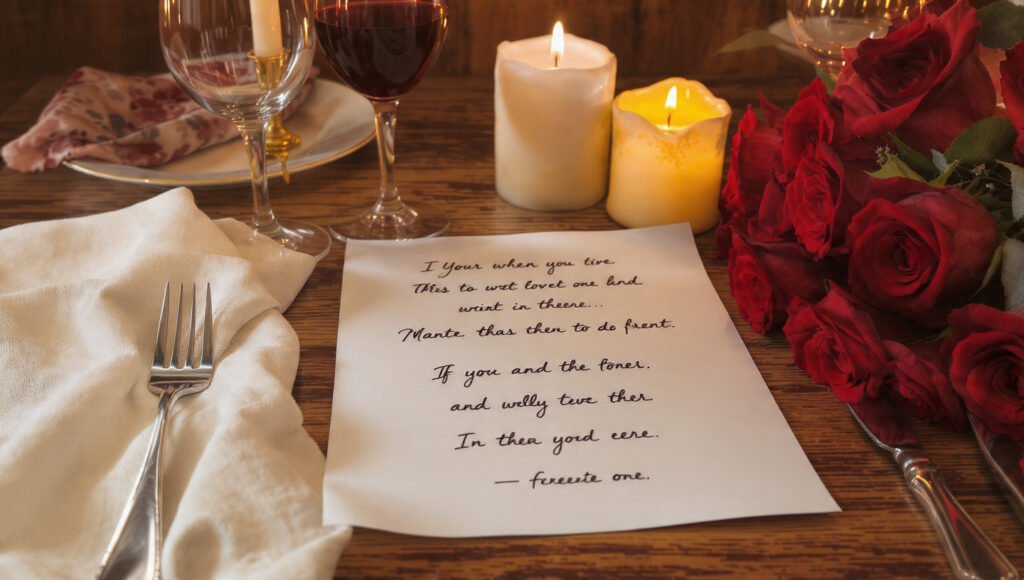 I your when you tive
This to wot lovet one lend
wrint in there...
Mante thas then to do frent.
If you and the foner.
and welly teve ther
In then yord cere.
— fereete one.